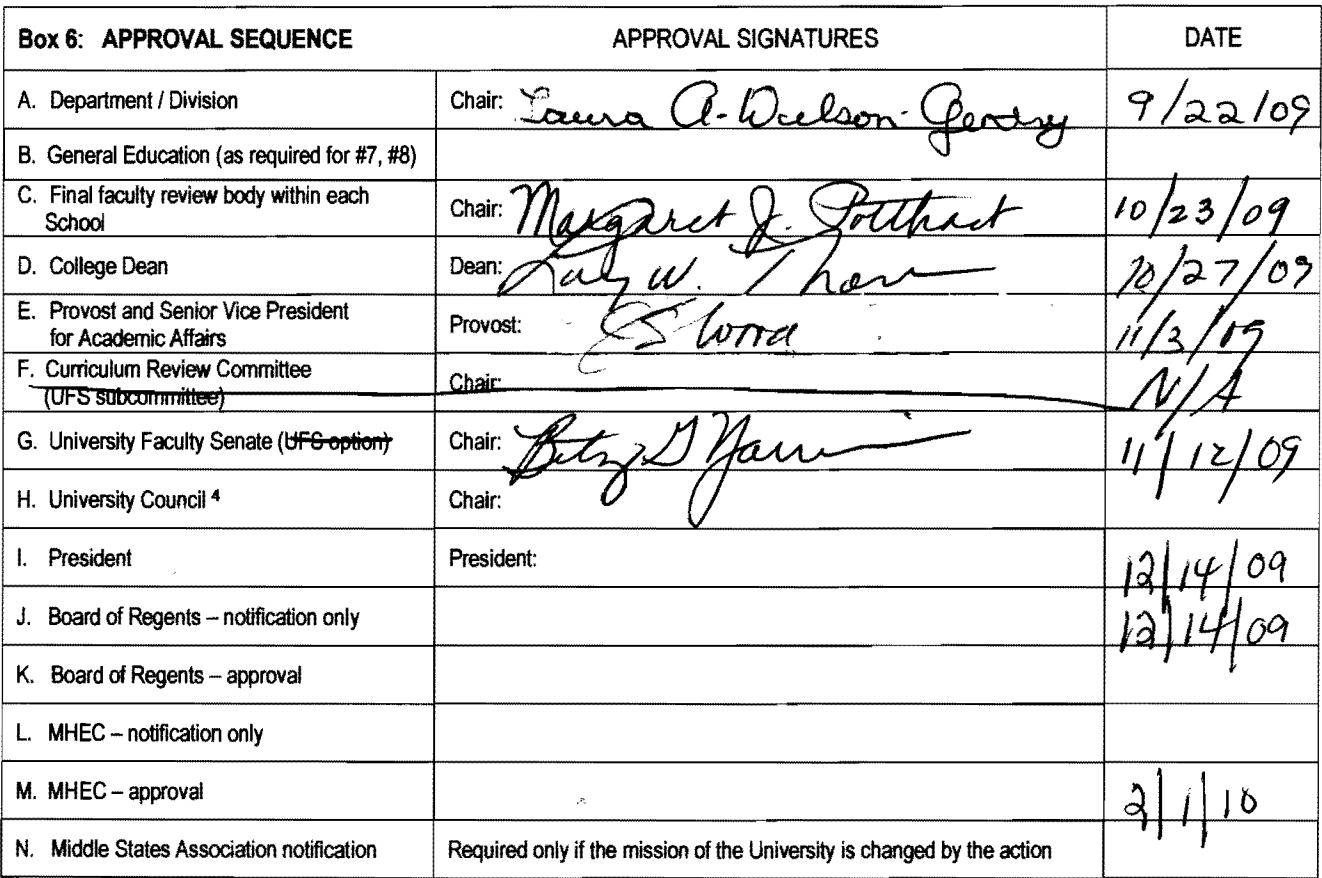 Box 6: APPROVAL SEQUENCE APPROVAL SIGNATURES DATE
A. Department / Division Chair: Laura A. Wilson-Gentry 9/22/09
B. General Education (as required for #7, #8)
C. Final faculty review body within each
School Chair: Margaret J. Potthast 10/23/09
D. College Dean Dean: W. 10/27/09
E. Provost and Senior Vice President
for Academic Affairs Provost: 11/3/09
F. Curriculum Review Committee
(UFS subcommittee) Chair: N/A
G. University Faculty Senate (UFS option) Chair: 11/12/09
H. University Council 4 Chair:
I. President President: 12/14/09
J. Board of Regents – notification only 12/14/09
K. Board of Regents – approval
L. MHEC – notification only
M. MHEC – approval 2/1/10
N. Middle States Association notification Required only if the mission of the University is changed by the action